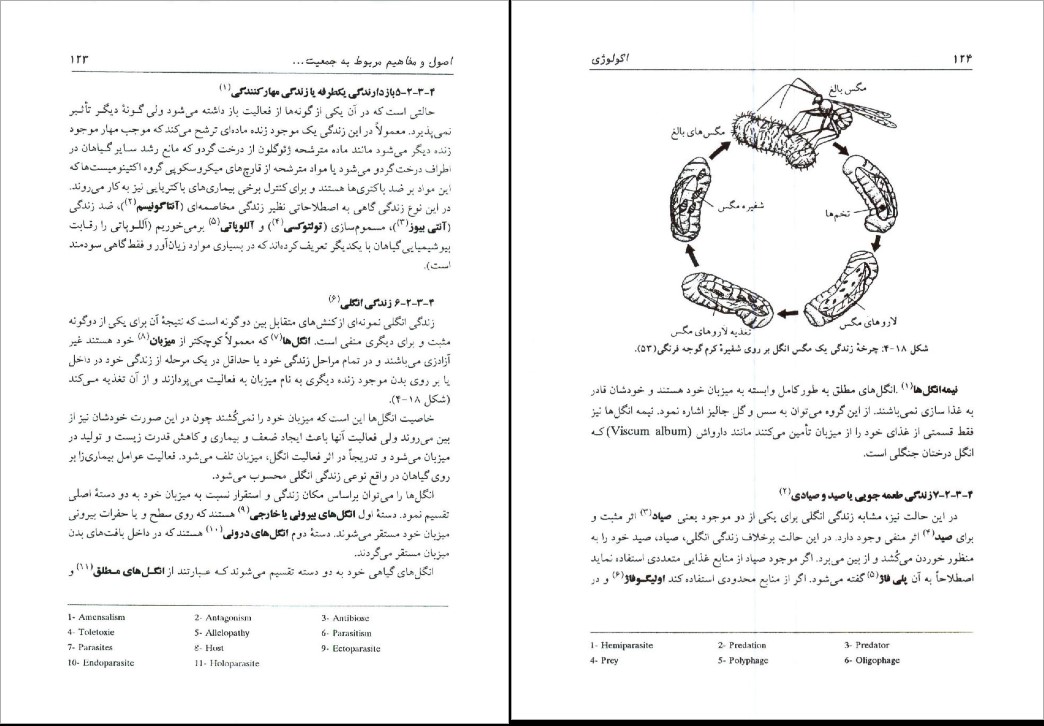 اصول و مفاهیم مربوط به جمعیت...
۱۲۳
۴-۳-۲-۵بازدارندگی یکطرفه یا زندگی مهارکنندگی(۱)
حالتی است که در آن یکی از گونه‌ها از فعالیت باز داشته می‌شود ولی گونهٔ دیگر تأثیر
نمی‌پذیرد. معمولاً در این زندگی یک موجود زنده ماده‌ای ترشح می‌کند که موجب مهار موجود
زنده دیگر می‌شود مانند ماده مترشحه ژئوگلون از درخت گردو که مانع رشد سایر گیاهان در
اطراف درخت گردو می‌شود یا مواد مترشحه از قارچ‌های میکروسکوپی گروه اکتینومیست‌ها که
این مواد بر ضد باکتری‌ها هستند و برای کنترل برخی بیماری‌های باکتریایی نیز به کار می‌روند.
در این نوع زندگی گاهی به اصطلاحاتی نظیر زندگی مخاصمه‌ای (آنتاگونیسم(۲))، ضد زندگی
(آنتی بیوز(۳))، مسموم‌سازی (تولتوکسی(۴)) و آللوپاتی(۵) برمی‌خوریم (آللوپاتی را رقابت
بیوشیمیایی گیاهان با یکدیگر تعریف کرده‌اند که در بسیاری موارد زیان‌آور و فقط گاهی سودمند
است).
۴-۳-۲-۶ زندگی انگلی(۶)
زندگی انگلی نمونه‌ای از کنش‌های متقابل بین دو گونه است که نتیجهٔ آن برای یکی از دوگونه
مثبت و برای دیگری منفی است. انگل‌ها(۷) که معمولاً کوچکتر از میزبان(۸) خود هستند غیر
آزادزی می‌باشند و در تمام مراحل زندگی خود یا حداقل در یک مرحله از زندگی خود در داخل
یا بر روی بدن موجود زنده دیگری به نام میزبان به فعالیت می‌پردازند و از آن تغذیه می‌کند
(شکل ۱۸-۴).
خاصیت انگل‌ها این است که میزبان خود را نمی‌کُشند چون در این صورت خودشان نیز از
بین می‌روند ولی فعالیت آنها باعث ایجاد ضعف و بیماری و کاهش قدرت زیست و تولید در
میزبان می‌شود و تدریجاً در اثر فعالیت انگل، میزبان تلف می‌شود. فعالیت عوامل بیماری‌زا بر
روی گیاهان در واقع نوعی زندگی انگلی محسوب می‌شود.
انگل‌ها را می‌توان براساس مکان زندگی و استقرار نسبت به میزبان خود به دو دستهٔ اصلی
تقسیم نمود. دستهٔ اول انگل‌های بیرونی یا خارجی(۹) هستند که روی سطح و یا حفرات بیرونی
میزبان خود مستقر می‌شوند. دستهٔ دوم انگل‌های درونی(۱۰) هستند که در داخل بافت‌های بدن
میزبان مستقر می‌گردند.
انگل‌های گیاهی خود به دو دسته تقسیم می‌شوند که عبارتند از انگل‌های مطلق(۱۱) و
1- Amensalism 2- Antagonism 3- Antibiose
4- Toletoxie 5- Allelopathy 6- Parasitism
7- Parasites 8- Host 9- Ectoparasite
10- Endoparasite 11- Holoparasite
۱۲۴
اکولوژی
مگس بالغ
مگس‌های بالغ
شفیره مگس
تخم‌ها
لاروهای مگس
تغذیه لاروهای مگس
شکل ۱۸-۴: چرخهٔ زندگی یک مگس انگل بر روی شفیرهٔ کرم گوجه فرنگی (۵۳).
نیمه‌انگل‌ها(۱). انگل‌های مطلق به طور کامل وابسته به میزبان خود هستند و خودشان قادر
به غذا سازی نمی‌باشند. از این گروه می‌توان به سس و گل جالیز اشاره نمود. نیمه انگل‌ها نیز
فقط قسمتی از غذای خود را از میزبان تأمین می‌کنند مانند دارواش (Viscum album) که
انگل درختان جنگلی است.
۴-۳-۲-۷زندگی طعمه جویی یا صید و صیادی(۲)
در این حالت نیز، مشابه زندگی انگلی برای یکی از دو موجود یعنی صیاد(۳) اثر مثبت و
برای صید(۴) اثر منفی وجود دارد. در این حالت برخلاف زندگی انگلی، صیاد، صید خود را به
منظور خوردن می‌کُشد و از بین می‌برد. اگر موجود صیاد از منابع غذایی متعددی استفاده نماید
اصطلاحاً به آن پلی فاژ(۵) گفته می‌شود. اگر از منابع محدودی استفاده کند اولیگوفاژ(۶) و در
1- Hemiparasite 2- Predation 3- Predator
4- Prey 5- Polyphage 6- Oligophage